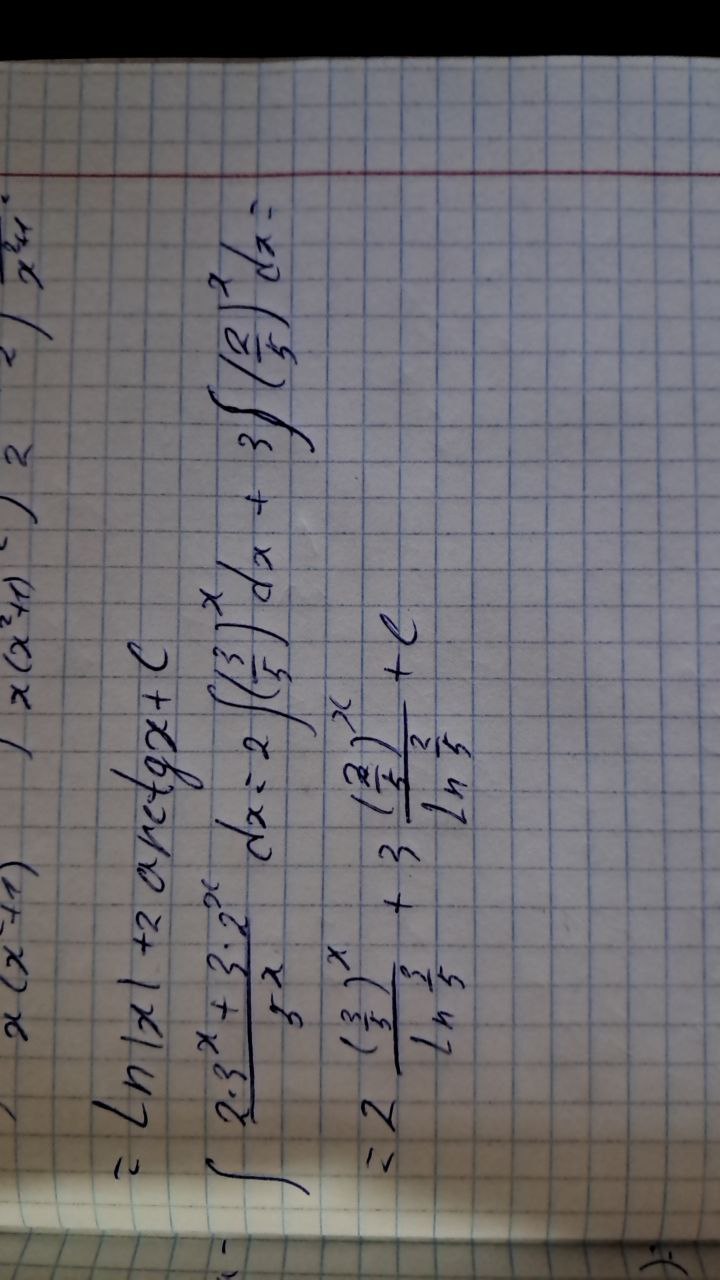 x(x²+1) x(x²+1) 2 2 x²+1
= ln|x| + 2 arctgx + C
∫ (2·3^x + 3·2^x)/5^x dx = 2 ∫ (3/5)^x dx + 3 ∫ (2/5)^x dx =
= 2 (3/5)^x / ln 3/5 + 3 (2/5)^x / ln 2/5 + C